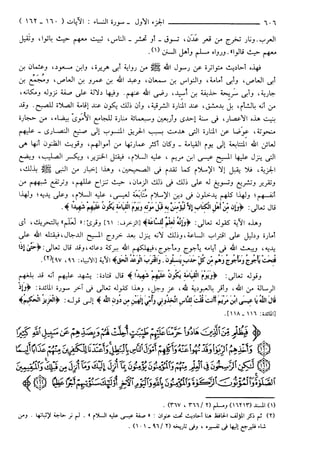 ٦٠٦ الجزء الأول - سورة النساء : الآيات ( ١٦٠ - ١٦٢ )
العرب. ونار تخرج من قعر عَدَن، تسوق - أو تحشر - الناس، تبيت معهم حيث باتوا، وتقيل
معهم حيث قالوا». ورواه مسلم وأهل السنن (١).
فهذه أحاديث متواترة عن رسول الله ﷺ من رواية أبي هريرة، وابن مسعود، وعثمان بن
أبي العاص، وأبي أمامة، والنواس بن سمعان، وعبد الله بن عمرو بن العاص، ومُجَمِّع بن
جارية، وأبي سَرِيحة حذيفة بن أسيد، رضي الله عنهم. وفيها دلالة على صفة نزوله ومكانه،
من أنه بالشأم، بل بدمشق، عند المنارة الشرقية، وأن ذلك يكون عند إقامة الصلاة للصبح. وقد
بنيت هذه الأعصار، في سنة إحدى وأربعين وسبعمائة منارة للجامع الأمويّ بيضاء، من حجارة
منحوتة، عوضا عن المنارة التي هدمت بسبب الحريق المنسوب إلى صنيع النصارى - عليهم
لعائن الله المتتابعة إلى يوم القيامة - وكان أكثر عمارتها من أموالهم، وقويت الظنون أنها هي
التي ينزل عليها المسيح عيسى ابن مريم، عليه السلام، فيقتل الخنزير، ويكسر الصليب، ويضع
الجزية، فلا يقبل إلا الإسلام كما تقدم في الصحيحين، وهذا إخبار من النبي ﷺ بذلك،
وتقرير وتشريع وتسويغ له على ذلك في ذلك الزمان، حيث تنزاح عللهم، وترتفع شبههم من
أنفسهم؛ ولهذا كلهم يدخلون في دين الإسلام مُتَابَعة لعيسى، عليه السلام، وعلى يديه؛ ولهذا
قال تعالى: ﴿وَإِن مِّنْ أَهْلِ الْكِتَابِ إِلَّا لَيُؤْمِنَنَّ بِهِ قَبْلَ مَوْتِهِ وَيَوْمَ الْقِيَامَةِ يَكُونُ عَلَيْهِمْ شَهِيدًا﴾.
وهذه الآية كقوله تعالى: ﴿وَإِنَّهُ لَعِلْمٌ لِّلسَّاعَةِ﴾ [الزخرف: ٦١] وقرئ: «لَعَلَم» بالتحريك، أي
أمارة ودليل على اقتراب الساعة، وذلك لأنه ينزل بعد خروج المسيح الدجال، فيقتله الله على
يديه، ويبعث الله في أيامه يأجوج ومأجوج، فيهلكهم الله ببركة دعائه، وقد قال تعالى: ﴿حَتَّى إِذَا
فُتِحَتْ يَأْجُوجُ وَمَأْجُوجُ وَهُم مِّن كُلِّ حَدَبٍ يَنسِلُونَ . وَاقْتَرَبَ الْوَعْدُ الْحَقُّ﴾ الآية [الأنبياء: ٩٦، ٩٧] (٢).
وقوله تعالى: ﴿وَيَوْمَ الْقِيَامَةِ يَكُونُ عَلَيْهِمْ شَهِيدًا﴾ قال قتادة: يشهد عليهم أنه قد بلغهم
الرسالة من الله، وأقر بالعبودية لله عز وجل، وهذا كقوله تعالى في آخر سورة المائدة: ﴿وَإِذْ
قَالَ اللَّهُ يَا عِيسَى ابْنَ مَرْيَمَ أَأَنتَ قُلْتَ لِلنَّاسِ اتَّخِذُونِي وَأُمِّيَ إِلَٰهَيْنِ مِن دُونِ اللَّهِ﴾ إلى قوله: ﴿الْعَزِيزُ الْحَكِيمُ﴾
[المائدة: ١١٦ ـ ١١٨].
﴿فَبِظُلْمٍ مِّنَ الَّذِينَ هَادُوا حَرَّمْنَا عَلَيْهِمْ طَيِّبَاتٍ أُحِلَّتْ لَهُمْ وَبِصَدِّهِمْ عَن سَبِيلِ اللَّهِ كَثِيرًا
وَأَخْذِهِمُ الرِّبَا وَقَدْ نُهُوا عَنْهُ وَأَكْلِهِمْ أَمْوَالَ النَّاسِ بِالْبَاطِلِ وَأَعْتَدْنَا لِلْكَافِرِينَ مِنْهُمْ عَذَابًا أَلِيمًا
لَّٰكِنِ الرَّاسِخُونَ فِي الْعِلْمِ مِنْهُمْ وَالْمُؤْمِنُونَ يُؤْمِنُونَ بِمَا أُنزِلَ إِلَيْكَ وَمَا أُنزِلَ مِن قَبْلِكَ وَالْمُقِيمِينَ
الصَّلَاةَ وَالْمُؤْتُونَ الزَّكَاةَ وَالْمُؤْمِنُونَ بِاللَّهِ وَالْيَوْمِ الْآخِرِ أُولَٰئِكَ سَنُؤْتِيهِمْ أَجْرًا عَظِيمًا﴾
(١) المسند (١٦٢١٣) ومسلم (٢ / ٣٦٦، ٣٦٧).
(٢) ثم ذكر المؤلف الحافظ هنا أحاديث تحت عنوان: «صفة عيسى عليه السلام». لم نر حاجة لإثباتها. ومن
شاء فليرجع إليها في تفسيره، وفي تاريخه (٢ / ٩٦ - ١٠١).